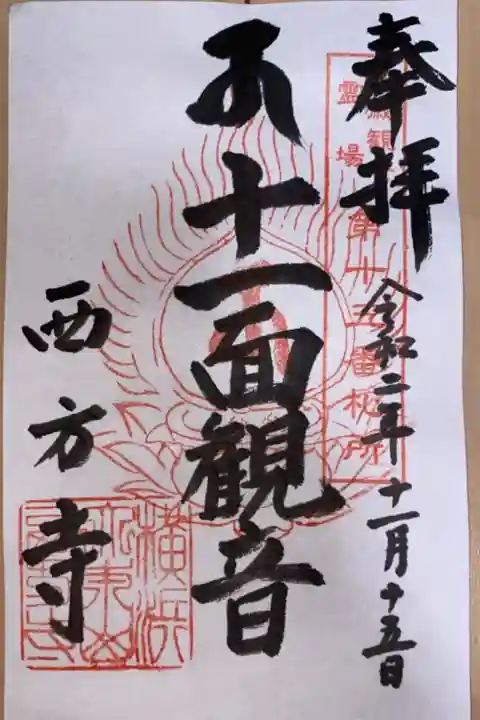 奉拝
令和二年十一月十五日
霊場
観
第十五番札所
十一面観音
西方寺
横浜